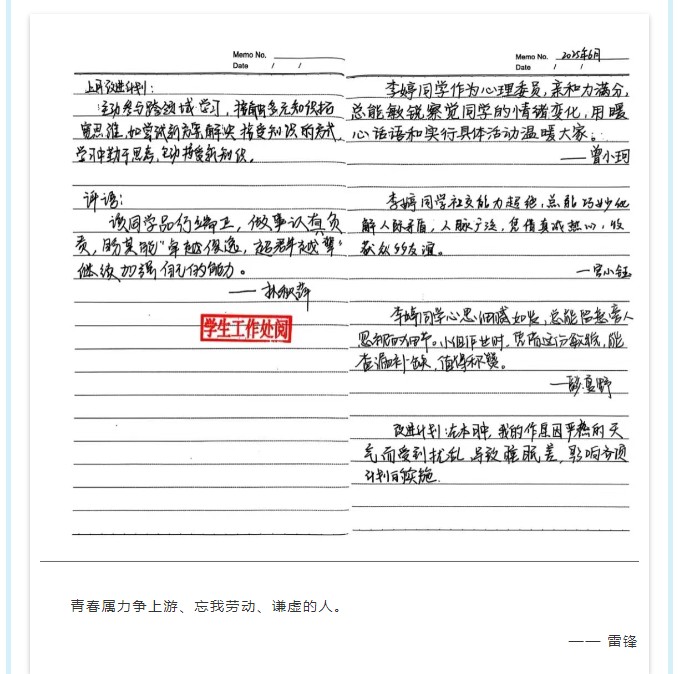 Memo No.
Date / /
上月改进计划:
主动参与跨领域学习,接触多元知识拓
宽思维,如尝试新方案解决 接受知识的方式,
学习中勤于思考,主动接受新知识。
评语:
该同学品行端正,做事认真负
责,盼其能“卓越俊逸,超群越辈”
继续加强自己的能力。
学生工作处阅
Memo No. 2025年6月
Date / /
李婷同学作为心理委员,亲和力满分,
总能敏锐察觉同学的情绪变化,用暖
心话语和实行具体活动温暖大家。
——曾小珂
李婷同学社交能力超绝,总能巧妙化
解人际矛盾,人脉广泛,凭借真诚热心,收
获众多友谊。
—宫小钰
李婷同学心思细腻如发,总能留意旁人
忽视的细节。小组作业时,凭借这份敏锐,能
查漏补缺,值得称赞。
改进计划:在本月中,我的作息因严热的天
气而受到扰乱,导致睡眠差,影响各项
计划的实施.
青春属力争上游、忘我劳动、谦虚的人。
—— 雷锋